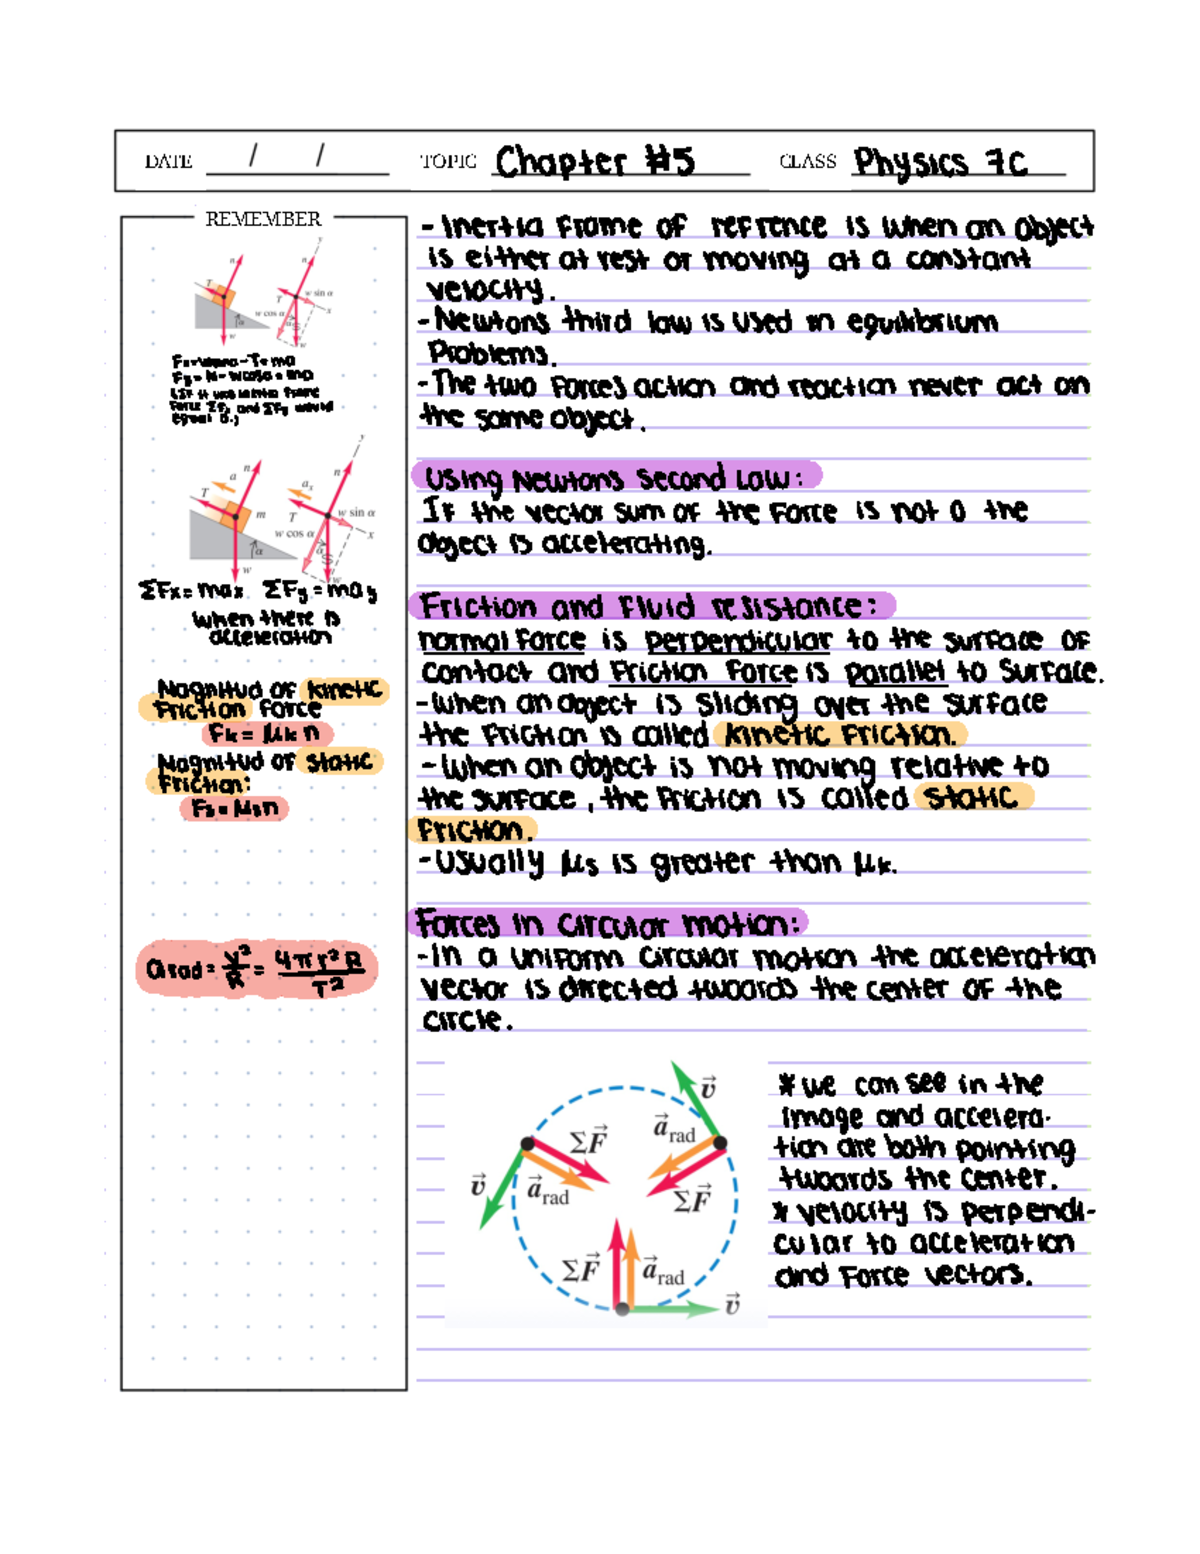 DATE / / TOPIC Chapter #5 CLASS Physics 7C
REMEMBER
n
y
T
T
w sin α
x
w cos α
α
α
w
w
Fy = N - wcosα = ma
force ΣFx and ΣFy would
equal 0.)
y
n
n
a
ax
T
m
T
w sin α
x
w cos α
α
α
w
w
ΣFx = max ΣFy = may
when there is
acceleration
Magnitud of kinetic
Friction force
Fk = μk n
Magnitud of static
Friction:
Fs = μsn
arad = v²/R = 4πr²R/T²
- Inertia Frame of refrence is when an object
is either at rest or moving at a constant
velocity.
- Newtons third law is used in equilibrium
Problems.
- The two forces action and reaction never act on
the same object.
Using Newtons Second Law:
If the vector sum of the Force is not 0 the
object is accelerating.
Friction and Fluid resistance:
normal force is perpendicular to the surface of
contact and Friction Force is parallel to surface.
- when an object is sliding over the surface
the Friction is called kinetic Friction.
- when an object is not moving relative to
the surface, the friction is called static
Friction.
- Usually μs is greater than μk.
Forces in circular motion:
- In a uniform circular motion the acceleration
vector is directed twoards the center of the
circle.
v
ΣF
arad
v
arad
ΣF
ΣF
arad
v
* we can see in the
image and accelera-
tion are both pointing
twoards the center.
* velocity is perpendi-
cular to acceleration
and Force vectors.